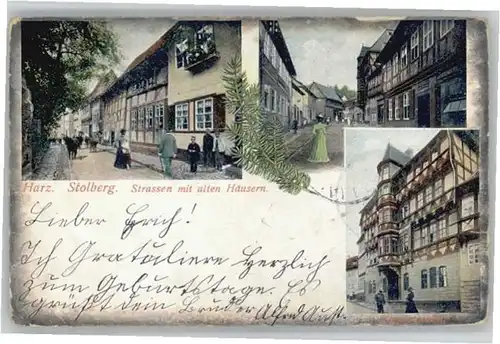 Harz. Stolberg. Strassen mit alten Häusern.
Lieber Erich!
Ich Gratuliere Herzlich
zum Geburtstage. Es
grüßt dein Bruder Alfred